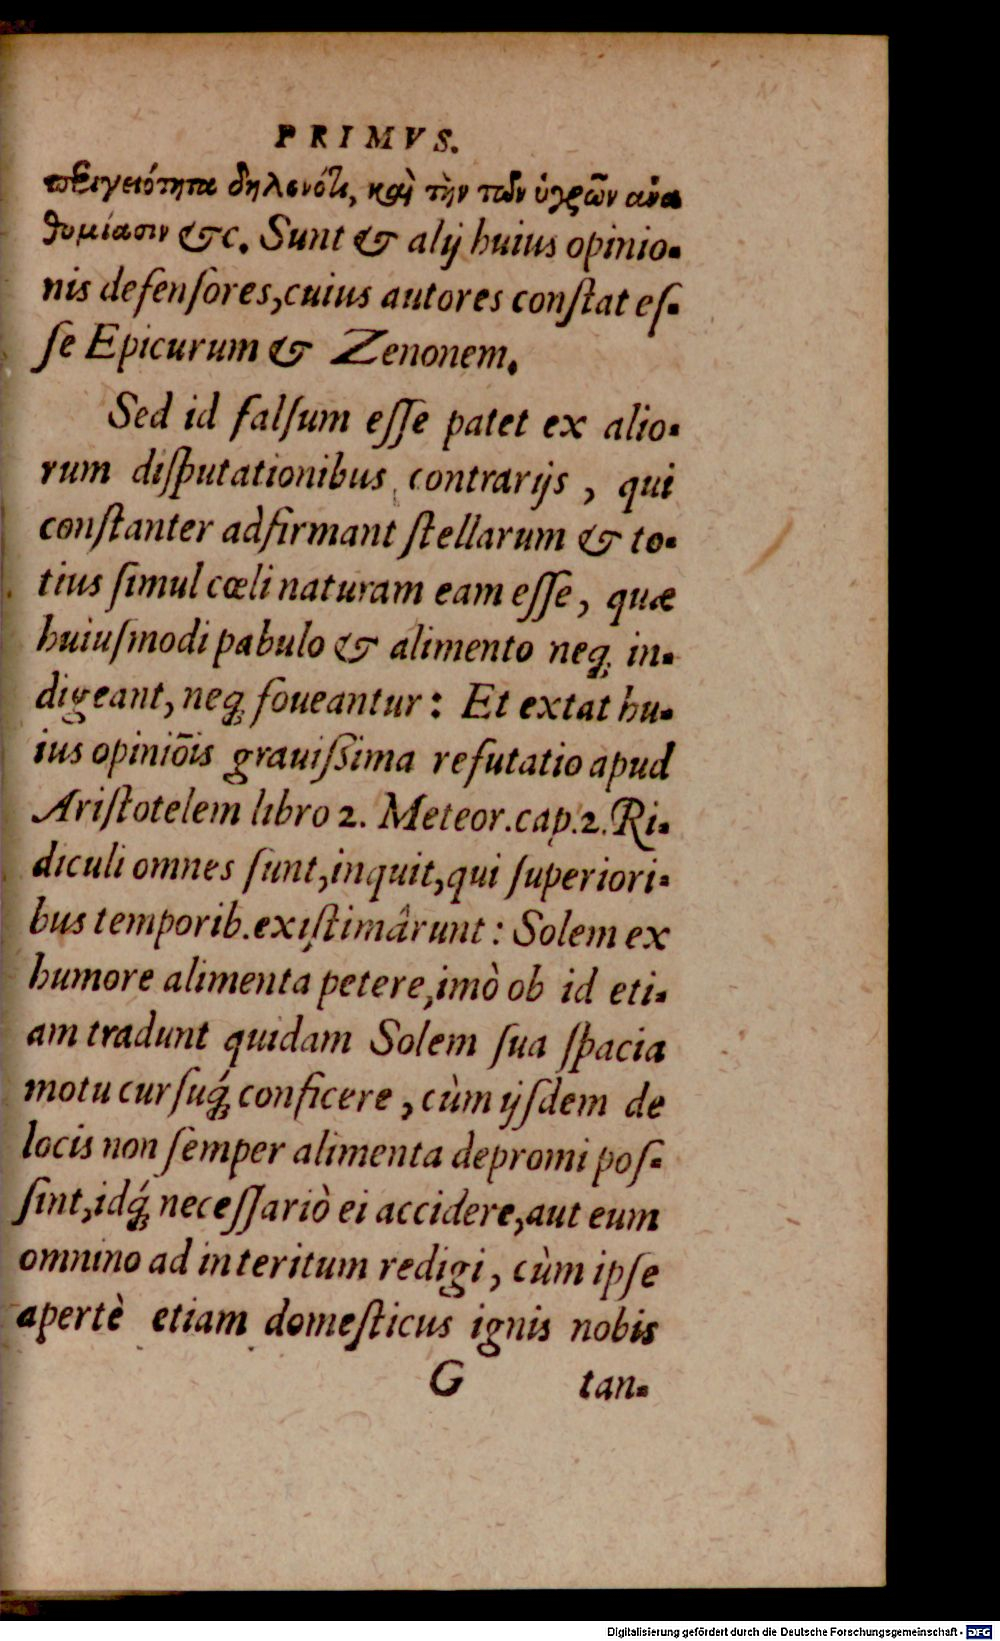 PRIMVS.
περιγειότητα δηλονότι, καὶ τὴν τῶν ὑγρῶν ἀνα
θυμίασιν &c. Sunt & alij huius opinio-
nis defenſores, cuius autores conſtat eſ-
ſe Epicurum & Zenonem.
Sed id falſum eſſe patet ex alio-
rum diſputationibus contrarijs, qui
conſtanter adfirmant ſtellarum & to-
tius ſimul cœli naturam eam eſſe, quæ
huiuſmodi pabulo & alimento neq; in-
digeant, neq; foueantur: Et extat hu-
ius opiniōis grauiſsima refutatio apud
Ariſtotelem libro 2. Meteor. cap. 2. Ri-
diculi omnes ſunt, inquit, qui ſuperiori-
bus temporib. exiſtimârunt: Solem ex
humore alimenta petere, imò ob id eti-
am tradunt quidam Solem ſua ſpacia
motu curſuq́; conficere, cùm ijſdem de
locis non ſemper alimenta depromi poſ-
ſint, idq́; neceſſariò ei accidere, aut eum
omnino ad interitum redigi, cùm ipſe
apertè etiam domeſticus ignis nobis
G tan-
Digitalisierung gefördert durch die Deutsche Forschungsgemeinschaft - DFG